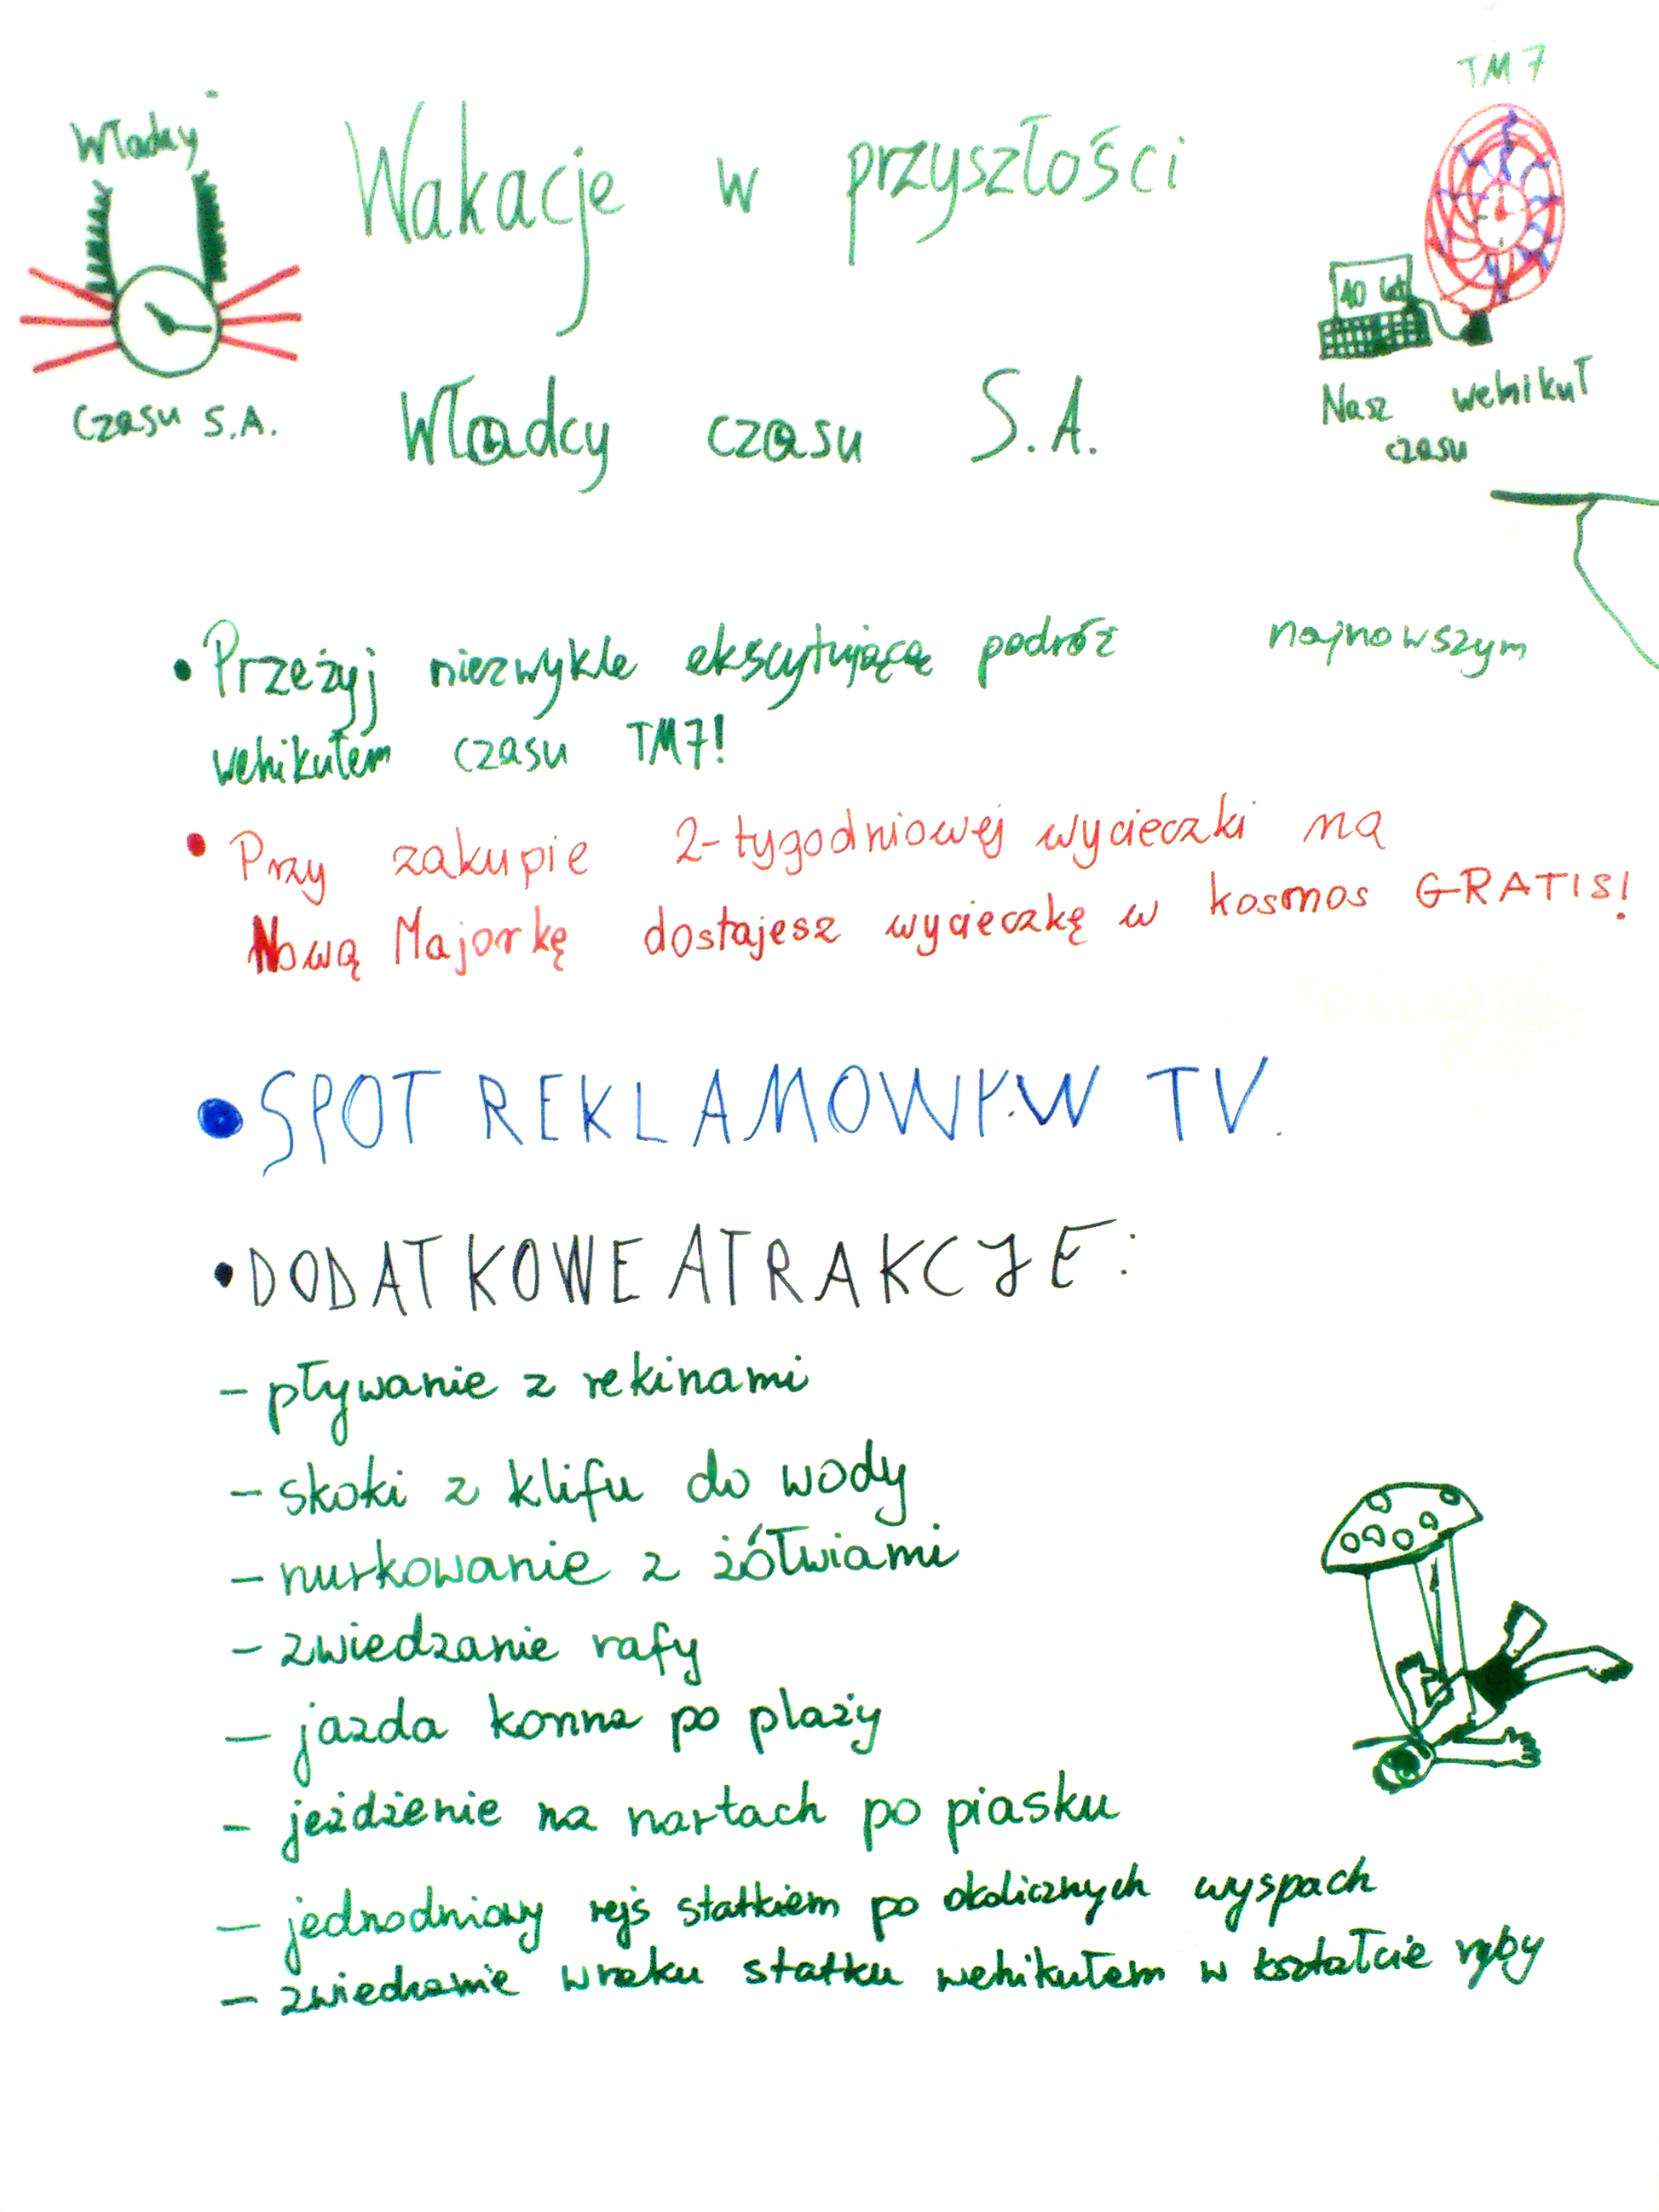 Władcy
Czasu S.A.
Wakacje w przyszłości
Władcy czasu S.A.
TM7
10 lat
Nasz wehikuł
czasu
• Przeżyj niezwykle ekscytującą podróż najnowszym
wehikułem czasu TM7!
• Przy zakupie 2-tygodniowej wycieczki na
Nową Majorkę dostajesz wycieczkę w kosmos GRATIS!
• SPOT REKLAMOWY W TV.
• DODATKOWE ATRAKCJE:
- pływanie z rekinami
- skoki z klifu do wody
- nurkowanie z żółwiami
- zwiedzanie rafy
- jazda konna po plaży
- jeżdżenie na nartach po piasku
- jednodniowy rejs statkiem po okolicznych wyspach
- zwiedzanie wraku statku wehikułem w kształcie ryby